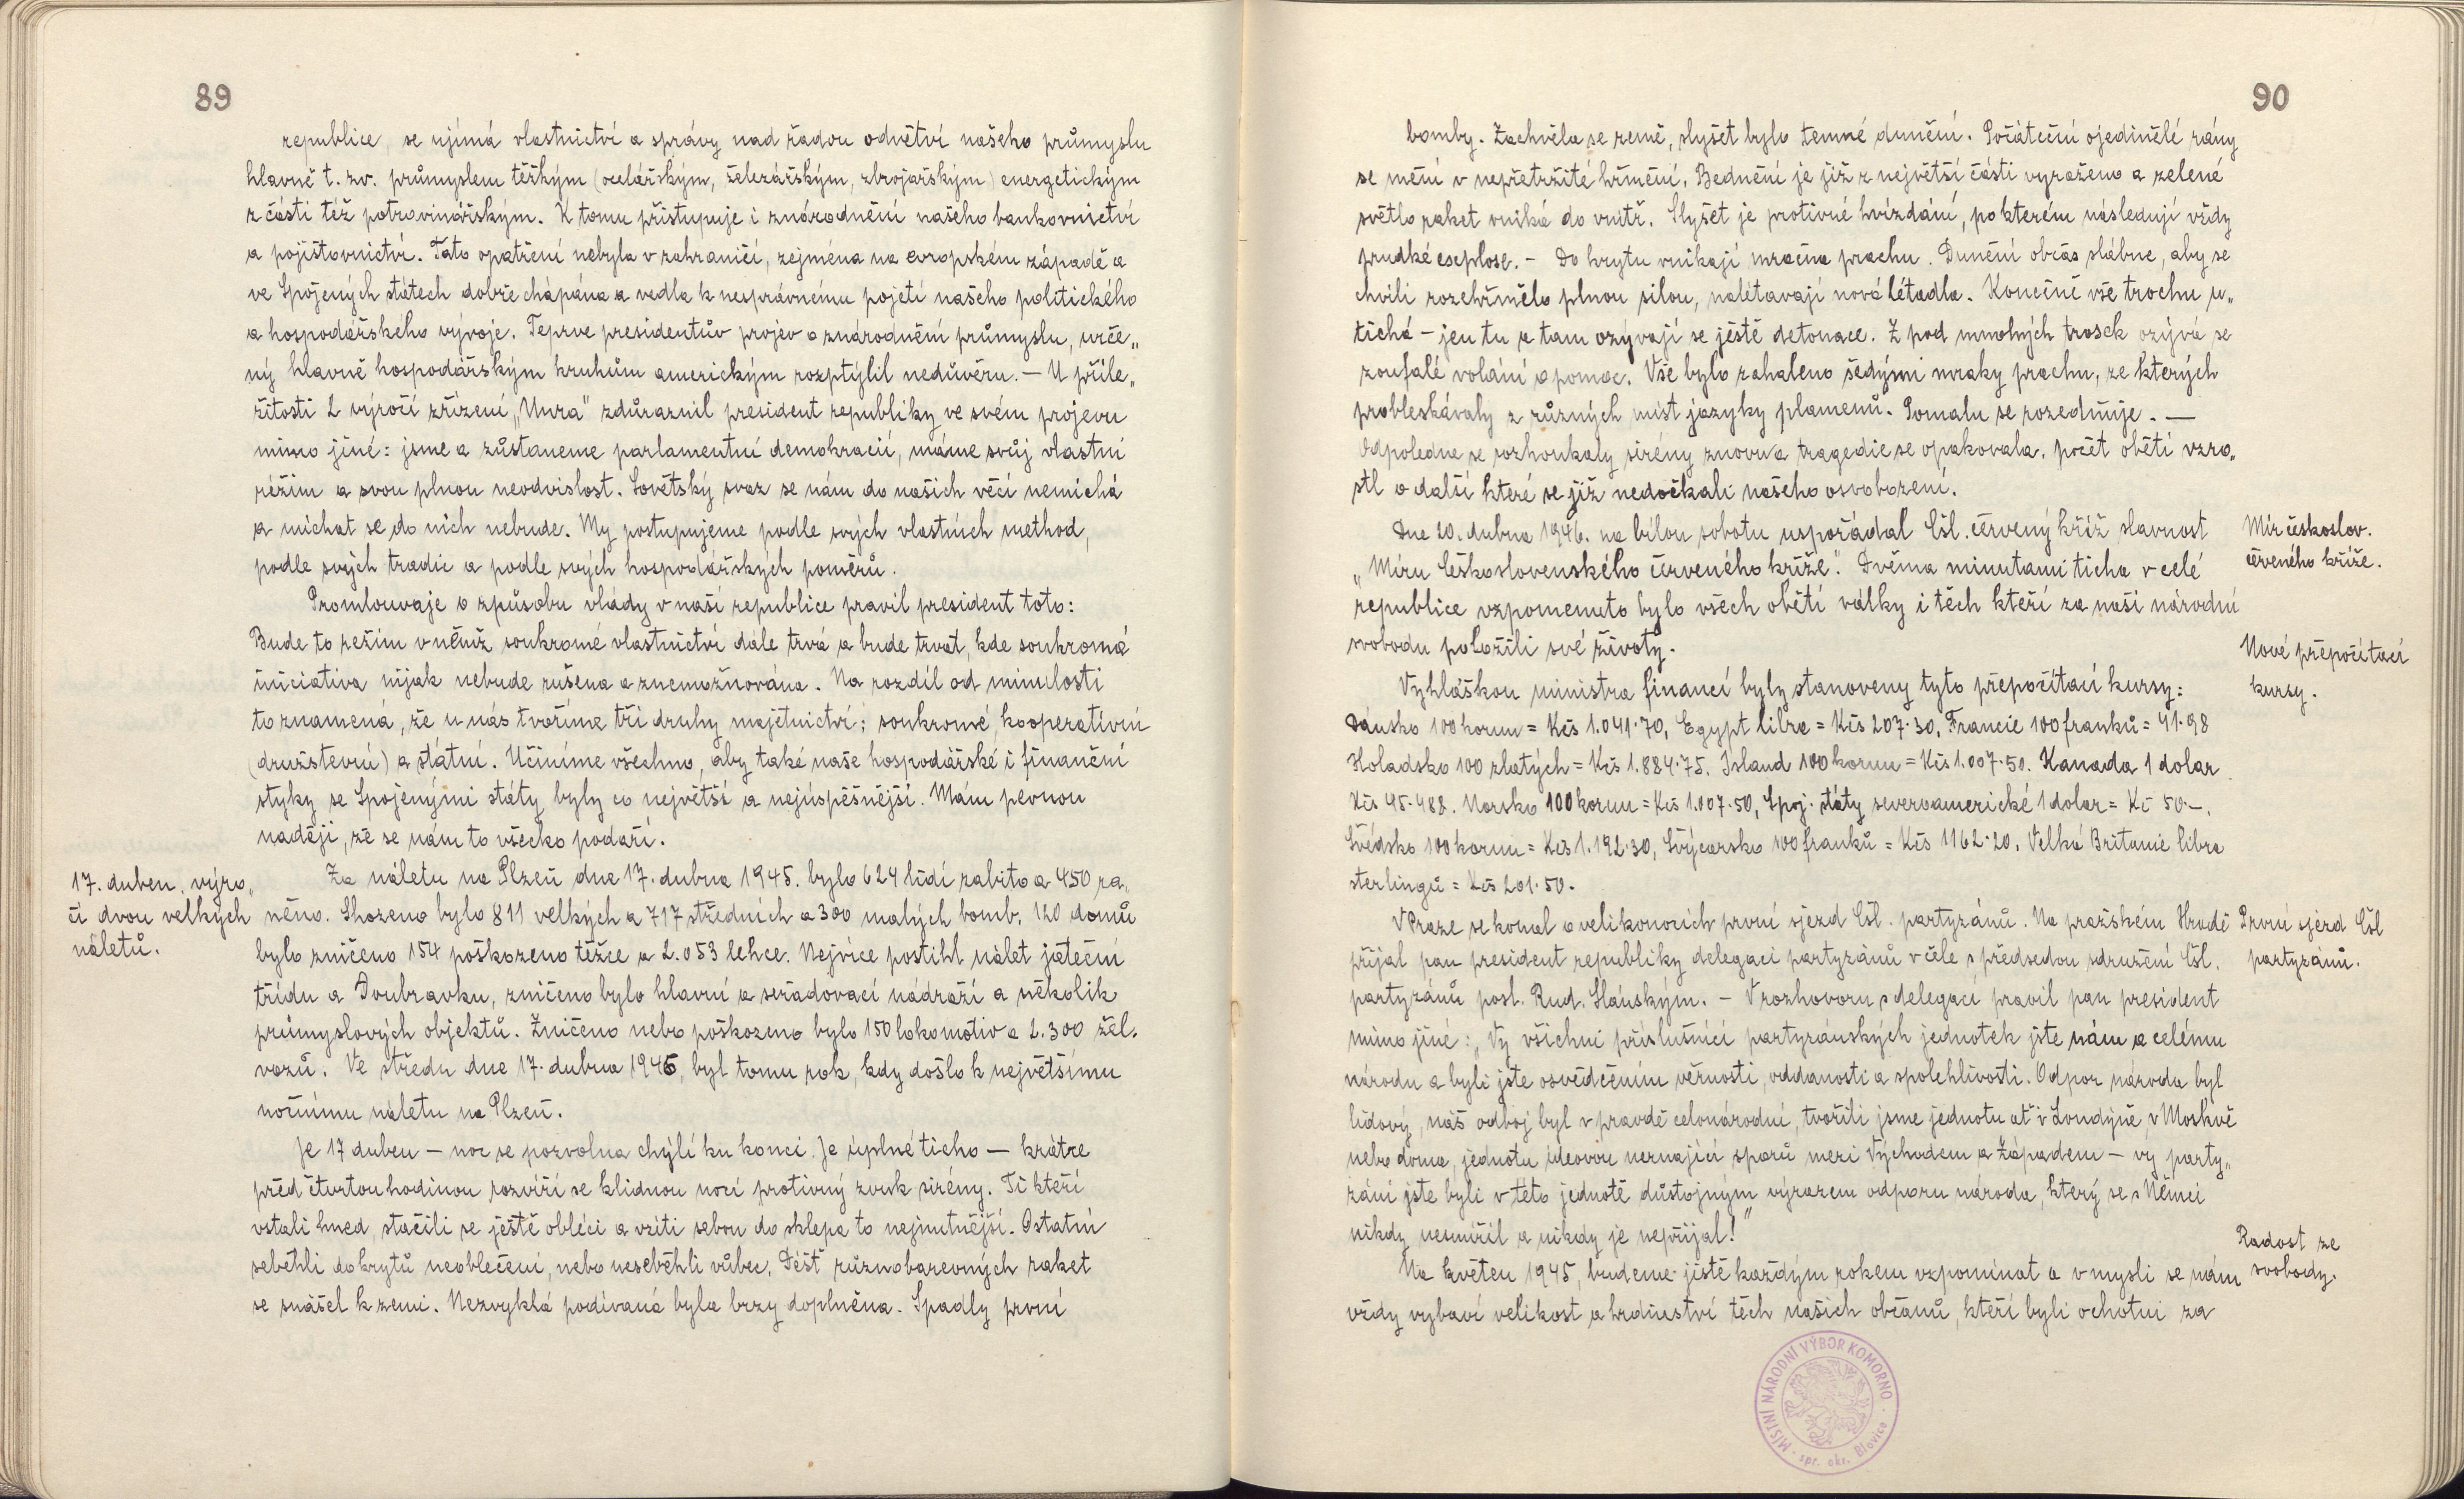 89
republice, se ujímá vlastnictví a správy nad řadou odvětví našeho průmyslu
hlavně t. zv. průmyslem těžkým (ocelářským, železářským, zbrojařským) energetickým
z části též potravinářským. K tomu přistupuje i znárodnění našeho bankovnictví
a pojišťovnictví. Tato opatření nebyla v zahraničí, zejména na evropském západě a
ve Spojených státech dobře chápána a vedla k nesprávnému pojetí našeho politického
a hospodářského vývoje. Teprve presidentův projev o znárodnění průmyslu, urče„
ný hlavně hospodářským kruhům americkým rozptýlil nedůvěru. — U příle„
žitosti 2 výročí zřízení „Unra" zdůraznil president republiky ve svém projevu
mimo jiné: jsme a zůstaneme parlamentní demokracií, máme svůj vlastní
režim a svou plnou neodvislost. Sovětský svaz se nám do našich věcí nemíchá
a míchat se do nich nebude. My postupujeme podle svých vlastních method,
podle svých tradic a podle svých hospodářských poměrů.
Promlouvaje o způsobu vlády v naší republice pravil president toto:
Bude to režim v němž soukromé vlastnictví dále trvá a bude trvat, kde soukromá
iniciativa nijak nebude rušena a znemožnována. Na rozdíl od minulosti
to znamená, že u nás tvoříme tři druhy majetnictví: soukromé, kooperativní
(družstevní) a státní. Učiníme všechno, aby také naše hospodářské i finanční
styky se Spojenými státy byly co největší a nejúspěšnější. Mám pevnou
naději, že se nám to všecko podaří.
17. duben, výro„
čí dvou velkých
náletů.
Za náletu na Plzeň dne 17. dubna 1945. bylo 624 lidí zabito a 450 ra„
něno. Shozeno bylo 811 velkých a 717 středních a 300 malých bomb. 120 domů
bylo zničeno 154 poškozeno těžce a 2.053 lehce. Nejvíce postihl nálet jateční
třídu a Doubravku, zničeno bylo hlavní a seřadovací nádraží a několik
průmyslových objektů. Zničeno nebo poškozeno bylo 150 lokomotiv a 2.300 žel.
vozů. Ve středu dne 17. dubna 1946, byl tomu rok, kdy došlo k největšímu
nočnímu náletu na Plzeň.
Je 17 duben — noc se pozvolna chýlí ku konci. Je úplné ticho — krátce
před čtvrtou hodinou rozvíří se klidnou nocí protivný zvuk sirény. Ti kteří
vstali hned, stačili se ještě obléci a vzíti sebou do sklepa to nejnutnější. Ostatní
seběhli do krytů neoblečeni, nebo neseběhli vůbec. Déšť různobarevných raket
se snášel k zemi. Nezvyklá podívaná byla brzy doplněna. Spadly první
90
bomby. Zachvěla se země, slyšet bylo temné dunění. Počáteční ojedinělé rány
se mění v nepřetržité hřmění. Bednění je již z největší části vyraženo a zelené
světlo raket vniká do vnitř. Slyšet je protivné hvízdání, po kterém následují vždy
prudké explose. — Do krytu vnikají mračna prachu. Dunění občas slábne, aby se
chvíli rozehřmělo plnou silou, nalétavají nová létadla. Konečně vše trochu u„
tichá — jen tu a tam ozývají se ještě detonace. Z pod mnohých trosek ozývá se
zoufalé volání o pomoc. Vše bylo zahaleno šedými mraky prachu, ze kterých
probleskávaly z různých míst jazyky plamenů. Pomalu se rozednuje. —
Odpoledne se rozhoukaly sirény znovu a tragedie se opakovala, počet obětí vzro„
stl o další které se již nedočkali našeho osvobození.
Dne 20. dubna 1946. na bílou sobotu uspořádal Čsl. červený kříž slavnost
„Míru Československého červeného kříže". Dvěma minutami ticha v celé
republice vzpomenuto bylo všech obětí války i těch kteří za naši národní
svobodu položili své životy.
Mír českoslov.
červeného kříže.
Vyhláškou ministra financí byly stanoveny tyto přepočítací kursy:
Dánsko 100 korun = Kčs 1.041·70, Egypt libra = Kčs 207·30, Francie 100 franků = 41·98
Holadsko 100 zlatých = Kčs 1.884·75. Island 100 korun = Kčs 1.007·50. Kanada 1 dolar
Kčs 45·488. Norsko 100 korun = Kčs 1.007·50, Spoj. státy severoamerické 1 dolar = Kč 50·—.
Švédsko 100 korun = Kčs 1.192·30, Švýcarsko 100 franků = Kčs 1162·20, Velká Britanie libra
sterlingů = Kčs 201·50.
Nové přepočítací
kursy.
V Praze se konal o velikonocích první sjezd Čsl. partyzánů. Na pražském Hradě
přijal pan president republiky delegaci partyzánů v čele s předsedou sdružení Čsl.
partyzánů posl. Rud. Slánským. — V rozhovoru s delegací pravil pan president
mimo jiné: „Vy všichni příslušníci partyzánských jednotek jste nám a celému
národu a byli jste osvědčením věrnosti, oddanosti a spolehlivosti. Odpor národa byl
lidový, náš odboj byl v pravdě celonárodní, tvořili jsme jednotu ať v Londýně, v Moskvě
nebo doma, jednotu ideovou neznající sporů mezi Východem a Západem — vy party„
záni jste byli v této jednotě důstojným výrazem odporu národa, který se s Němci
nikdy nesmířil a nikdy je nepřijal!"
První sjezd Čsl
partyzánů.
Na květen 1945, budeme jistě každým rokem vzpomínat a v mysli se nám
vždy vybaví velikost a hrdinství těch našich občanů, kteří byli ochotni za
Radost ze
svobody.
MÍSTNÍ NÁRODNÍ VÝBOR KOMORNO
spr. okr. Blovice